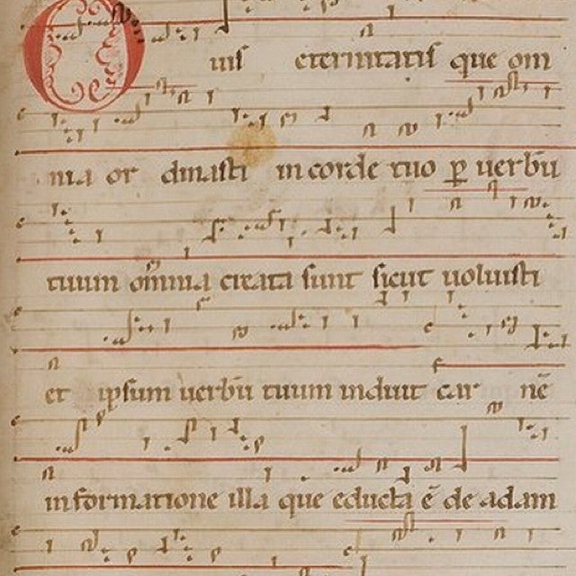 O uis eternitatis que om
nia or dinasti in corde tuo ꝑ uerbū
tuum om̄nia creata sunt sicut uoluisti
et ipsum uerbū tuum induit car nē
in formatione illa que educta ē de adam